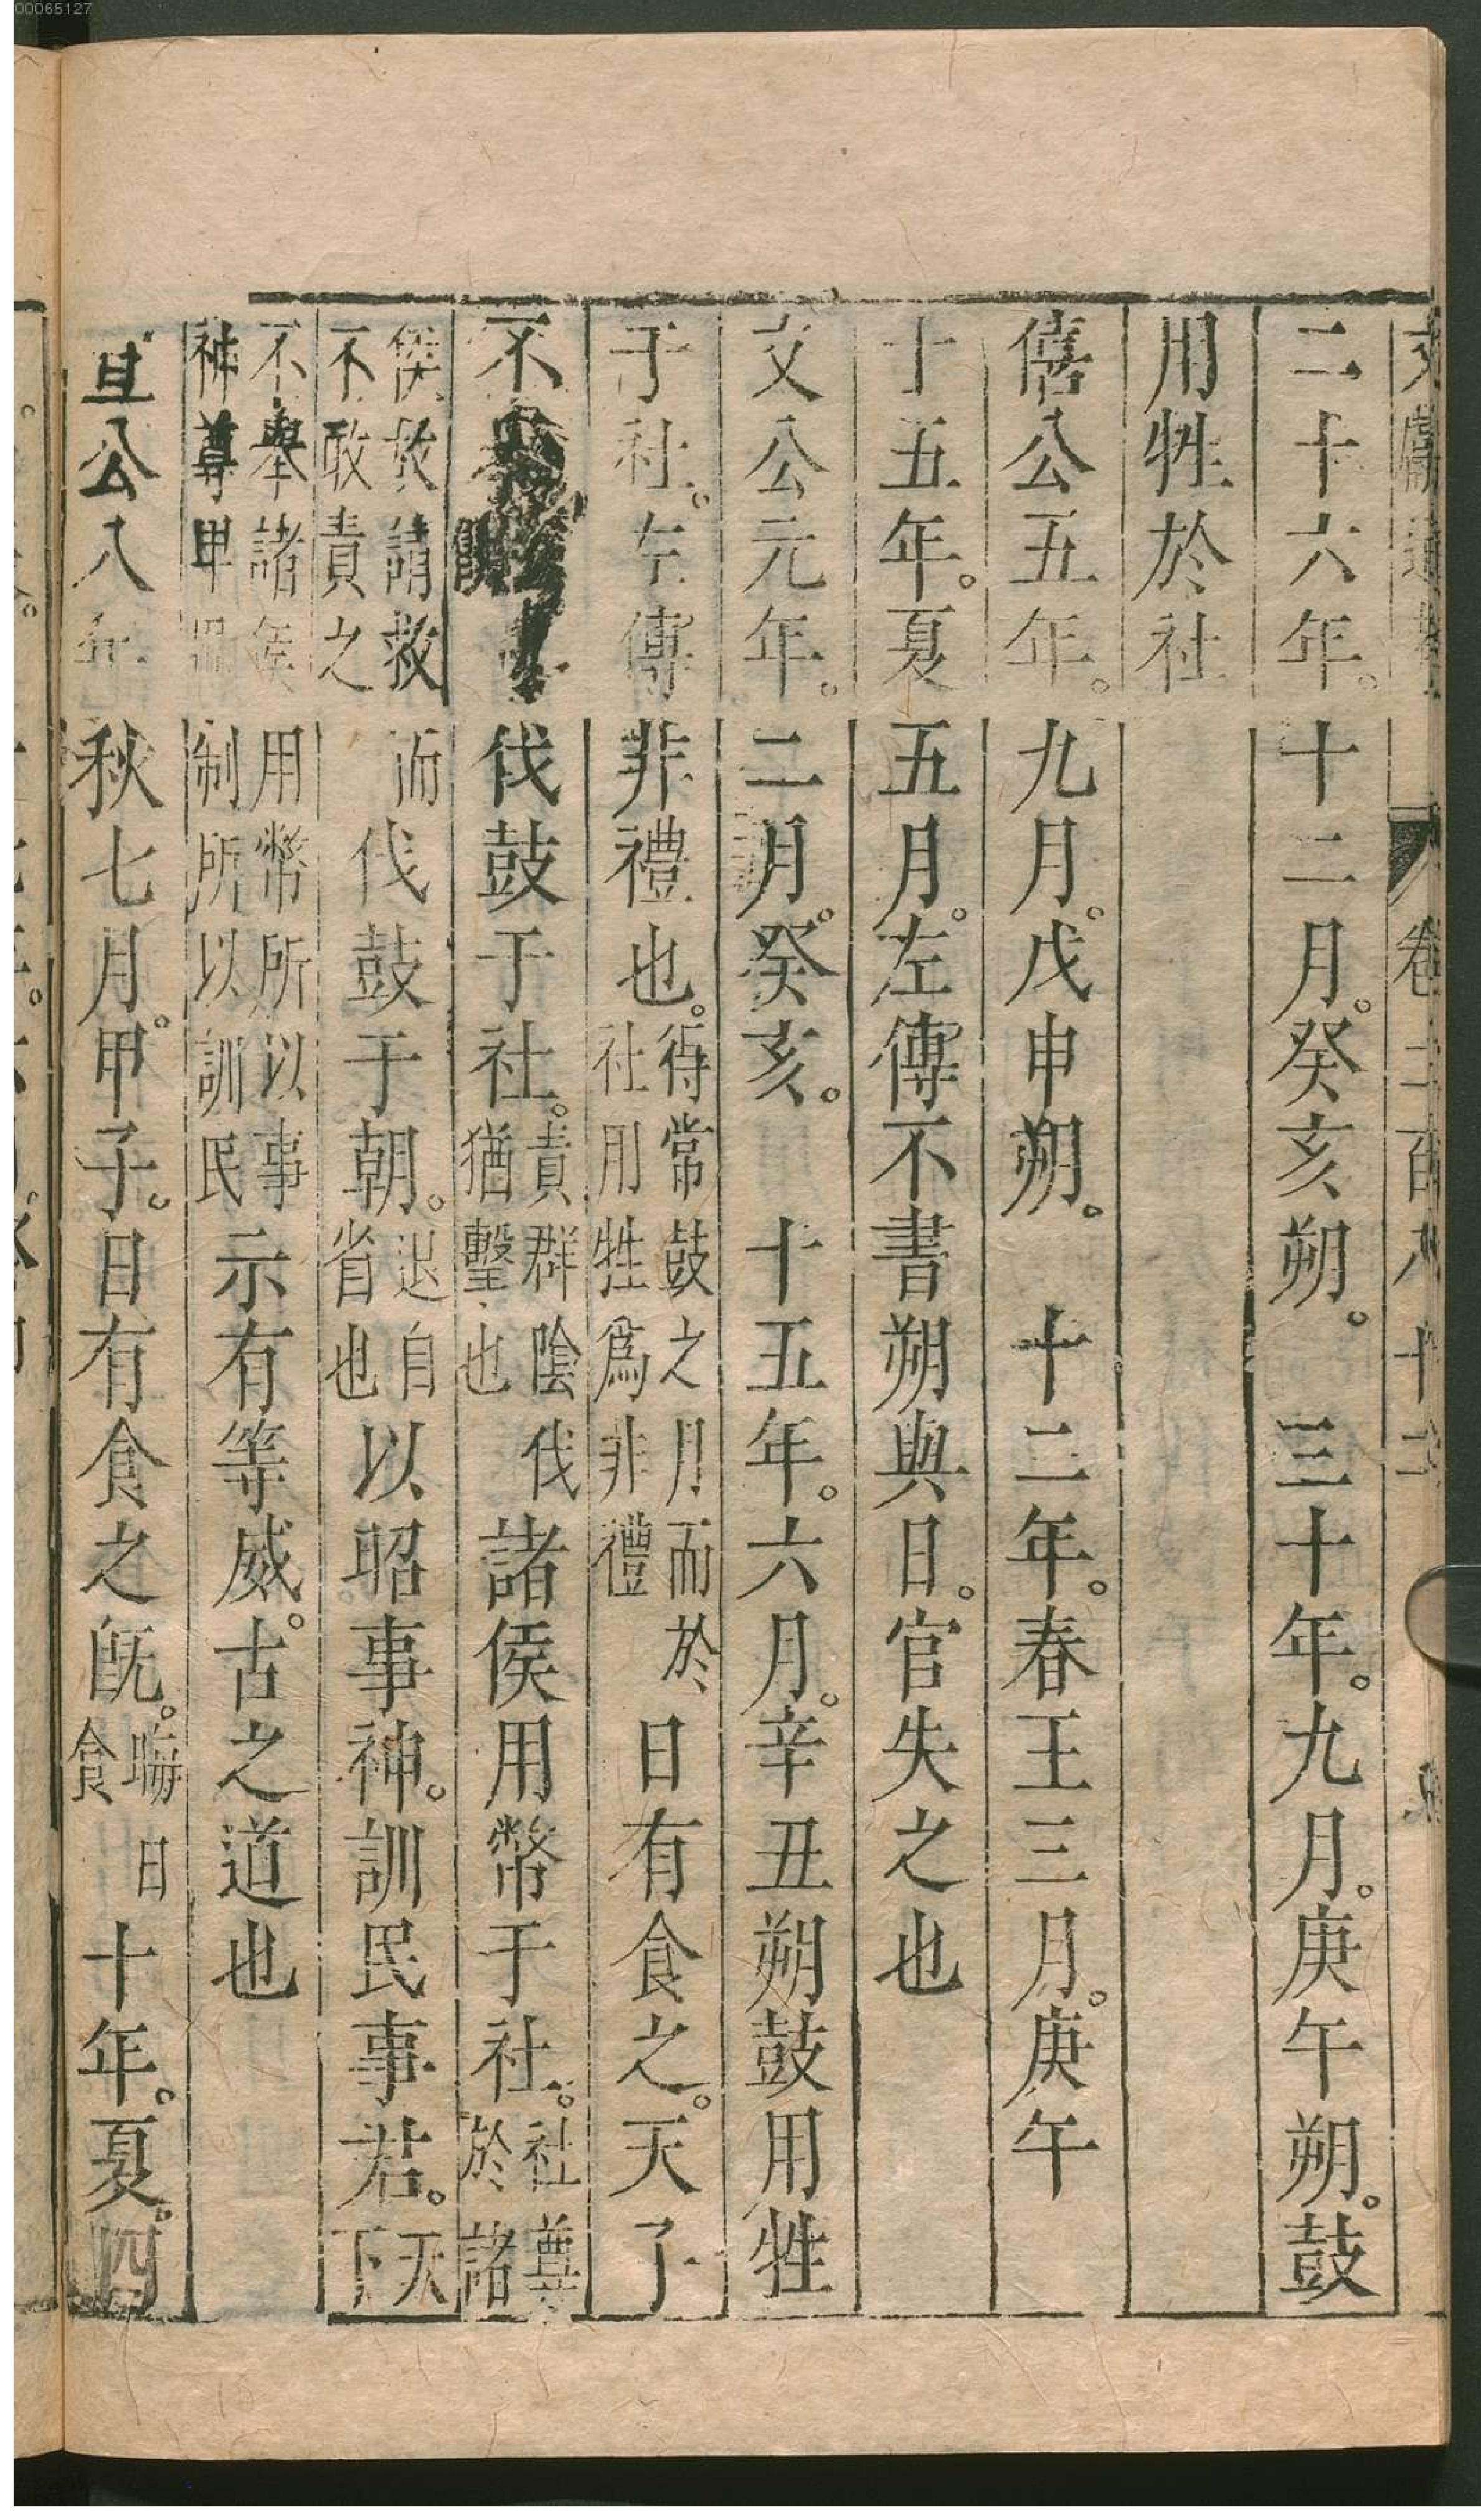 00065127
文獻通考 卷二百八十二
二十六年。十二月。癸亥朔。 三十年。九月。庚午朔。鼓
用牲於社
僖公五年。九月。戊申朔。 十二年。春王三月。庚午
十五年。夏五月。左傳不書朔與日。官失之也
文公元年。二月。癸亥。 十五年。六月。辛丑朔鼓用牲
于社。左傳非禮也。得常鼓之月而於社用牲爲非禮日有食之。天子
不 伐鼓于社。責群陰伐猶擊也諸侯用幣于社。社尊於諸
侯故請救而不敢責之伐鼓于朝。退自省也以昭事神。訓民事君。天下
不舉諸侯用幣所以事神尊卑 制所以訓民示有等威。古之道也
宣公八年秋七月。甲子。日有食之旣。晦日食十年。夏。四